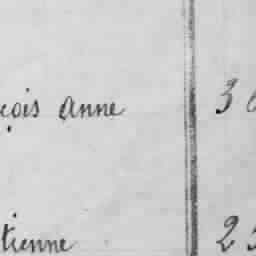 çois anne 36
tienne 25